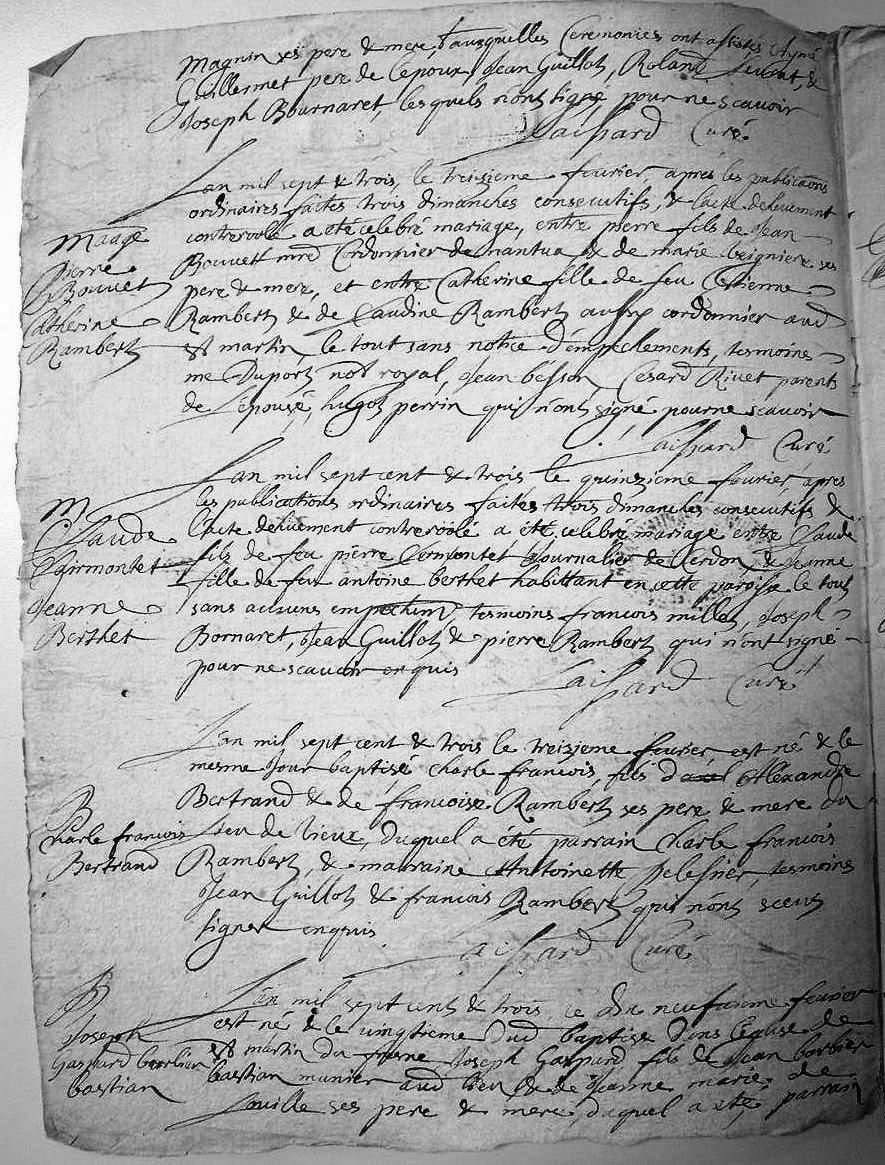 Magnin ses pere & mere, ausquelles Ceremonies ont assistés Aymé
Guillermet pere de l'epoux, Jean Guillot, Roland &
Joseph Bournaret, lesquels n'ont signé pour ne scavoir
Curé
Lan mil sept & trois, le treizieme fevrier, apres les publications
ordinaires faites trois dimanches consecutifs, & l'acte deheuement
controrolé a eté celebré mariage, entre pierre fils de Jean
Bouvett mrd Cordonnier de nantua & de marie ses
pere & mere, et entre Catherine fille de feu Estienne
Rambert & de Claudine Rambert aussy cordonnier aud
st martin, le tout sans notice d'empechements, tesmoins
me Duport not royal, Jean besson, Cesard Rivet parents
de l'epouse, hugot perrin qui n'ont signé pour ne scavoir
Curé
Mariage
Pierre
Bouvet
Catherine
Rambert
Lan mil sept cent & trois le quinzieme fevrier apres
les publications ordinaires faites trois dimanches consecutifs &
l'acte deheuement controrolé a eté celebré mariage entre Claude
fils de feu pierre Clermontet Journalier de Cerdon & Jeanne
fille de feu antoine berthet habittant en cette paroisse le tout
sans aucuns empechim tesmoins francois millet, Joseph
Bornaret, Jean Guillot & pierre Rambert qui n'ont signé
pour ne scavoir enquis
Curé
M
Claude
Clairmontet
Jeanne
Berthet
Lan mil sept cent & trois le treizieme fevrier est né & le
mesme Jour baptisé charle francois fils Alexandre
Bertrand & de francoise Rambert ses pere & mere du
lieu de vieux, duquel a été parrain Charle francois
Rambert, & marraine Antoinette tesmoins
Jean Guillot & francois Rambert qui n'ont sceut
signer enquis
Curé
B
Charle francois
Bertrand
Lan mil sept cent & trois, ce dix neufvieme fevrier
est né & le vingtieme Dud baptisé dans l'eglise de
st martin du frene Joseph Gaspard fils de Jean barbier
bastian munier aud lieu & de Jeanne marie de
ses pere & mere, duquel a eté parrain
B
Joseph
Gaspard
bastian